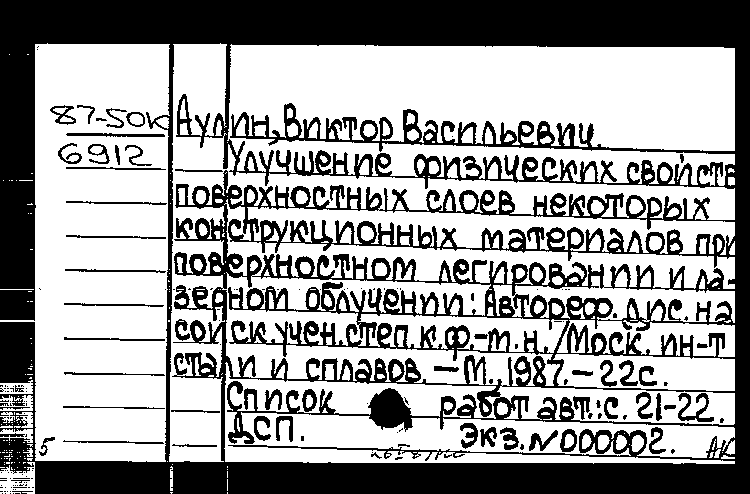 87-50к Аулин, Виктор Васильевич.
6912 Улучшение физических свойств
поверхностных слоев некоторых
конструкционных материалов при
поверхностном легировании и ла-
зерном облучении: Автореф. дис. на
соиск. учен. степ. к.ф.-м.н. /Моск. ин-т
стали и сплавов. — М., 1987. — 22с.
Список работ авт.: с. 21-22.
ДСП. Экз. №000002.
5 АК